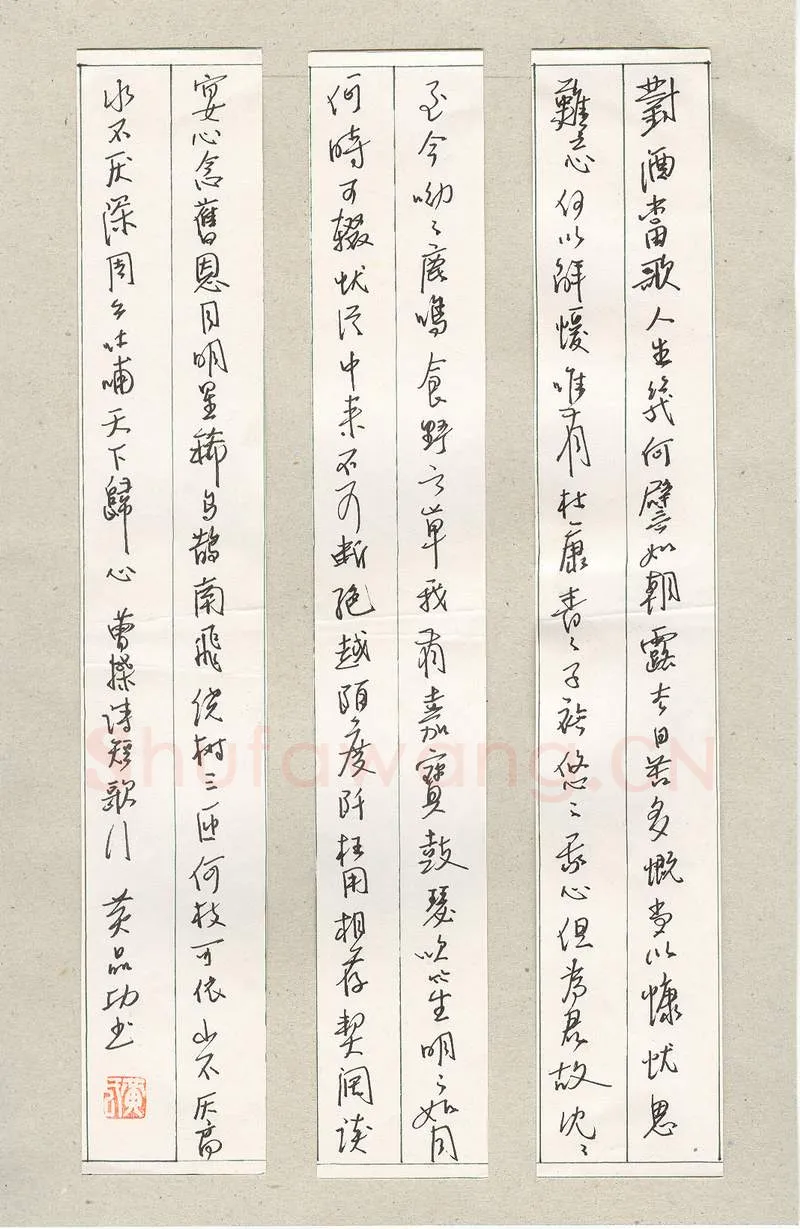 對酒當歌人生幾何譬如朝露去日苦多慨當以慷忧思
難忘何以解憂唯有杜康青〻子衿悠〻我心但為君故沈〻
至今呦〻鹿鳴食野之苹我有嘉賓鼓瑟吹笙明〻如月
何時可輟忧從中来不可断绝越陌度阡枉用相存契阔谈
宴心念舊恩月明星稀乌鹊南飛绕树三匝何枝可依山不厌高
水不厌深周公吐哺天下歸心 曹操诗短歌行 黄品功书
Shufawang.CN